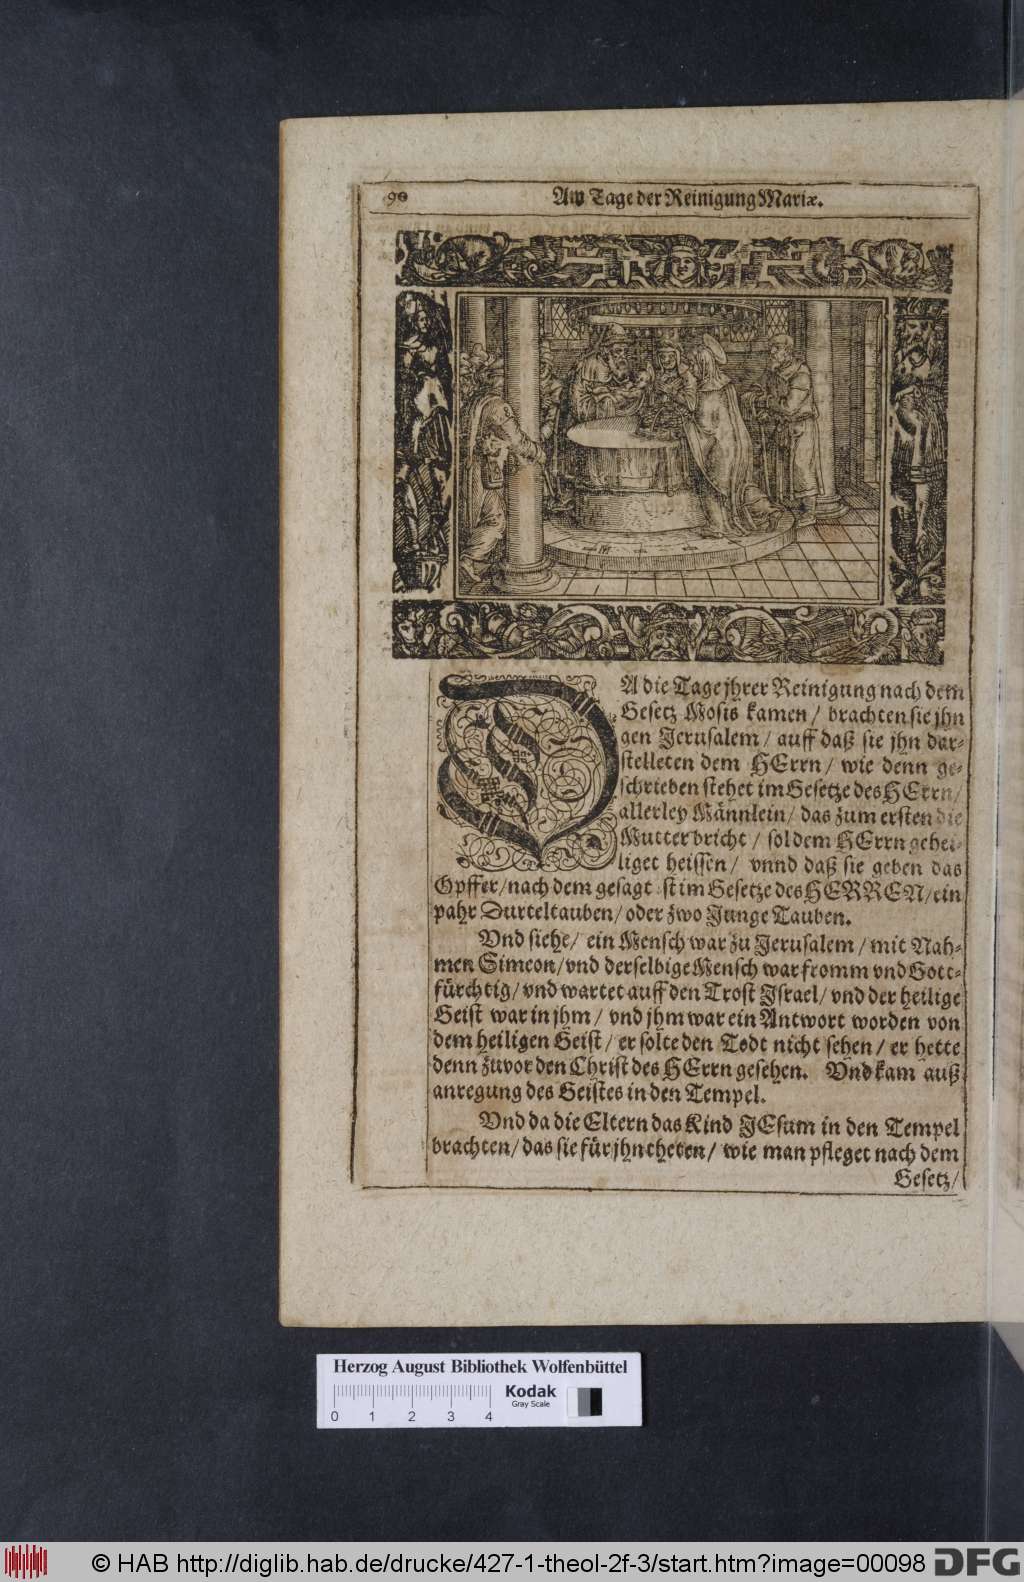 90
Am Tage der Reinigung Mariæ.
DA die Tage jhrer Reinigung nach dem
Gesetz Mosis kamen / brachten sie jhn
gen Jerusalem / auff daß sie jhn dar-
stelleten dem HErrn / wie denn ge-
schrieben stehet im Gesetze des HErrn /
allerley Männlein / das zum ersten die
Mutter bricht / sol dem HErrn gehei-
liget heissen / vnnd daß sie geben das
Opffer / nach dem gesagt ist im Gesetze des HERREN / ein
pahr Durteltauben / oder zwo Junge Tauben.
Vnd siehe / ein Mensch war zu Jerusalem / mit Nah-
men Simeon / vnd derselbige Mensch war fromm vnd Gott-
fürchtig / vnd wartet auff den Trost Jsrael / vnd der heilige
Geist war in jhm / vnd jhm war ein Antwort worden von
dem heiligen Geist / er solte den Todt nicht sehen / er hette
denn zuvor den Christ des HErrn gesehen. Vnd kam auß
anregung des Geistes in den Tempel.
Vnd da die Eltern das Kind JEsum in den Tempel
brachten / das sie für jhn theten / wie man pfleget nach dem
Gesetz /
Herzog August Bibliothek Wolfenbüttel
Kodak
Gray Scale
0 1 2 3 4
© HAB http://diglib.hab.de/drucke/427-1-theol-2f-3/start.htm?image=00098
DFG